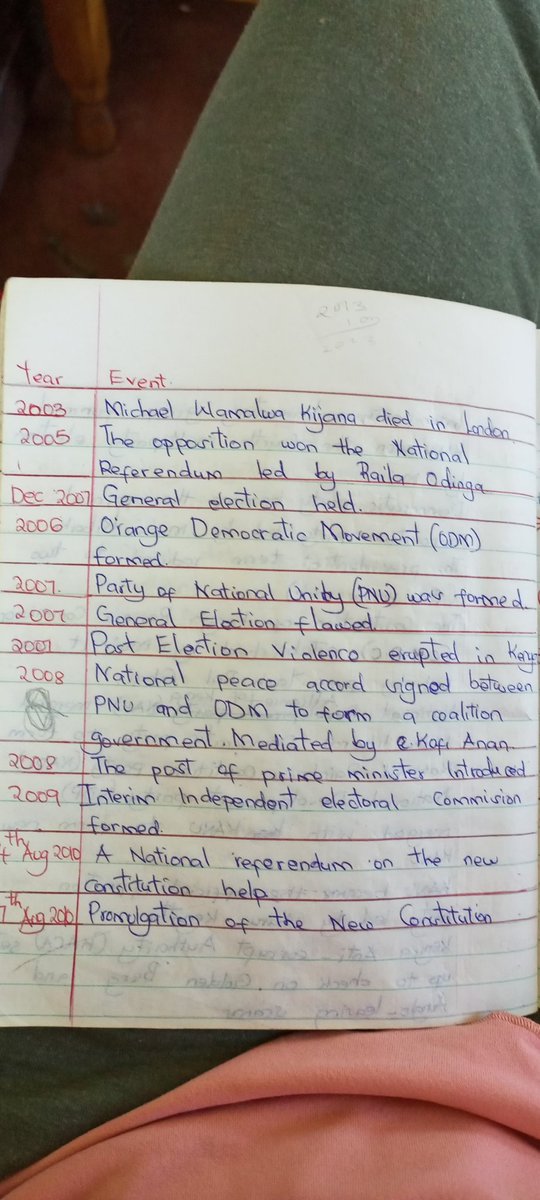 2013
10
2023
Year Event.
2003 Michael Wamalwa Kijana died in London
2005 The opposition won the National
Referendum led by Raila Odinga
Dec 2007 General election held.
2006 Orange Democratic Movement (ODM)
formed.
2007. Party of National Unity (PNU) was formed.
2007 General Election flawed
2007 Post Election Violence erupted in Keny
2008 National peace accord signed between
PNU and ODM to form a coalition
government. Mediated by Kofi Anan.
2008 The post of prime minister Introduced
2009 Interim Independent electoral Commision
formed.
th Aug 2010 A National referendum on the new
constitution help
7th Aug 2010 Promulgation of the New Constitution